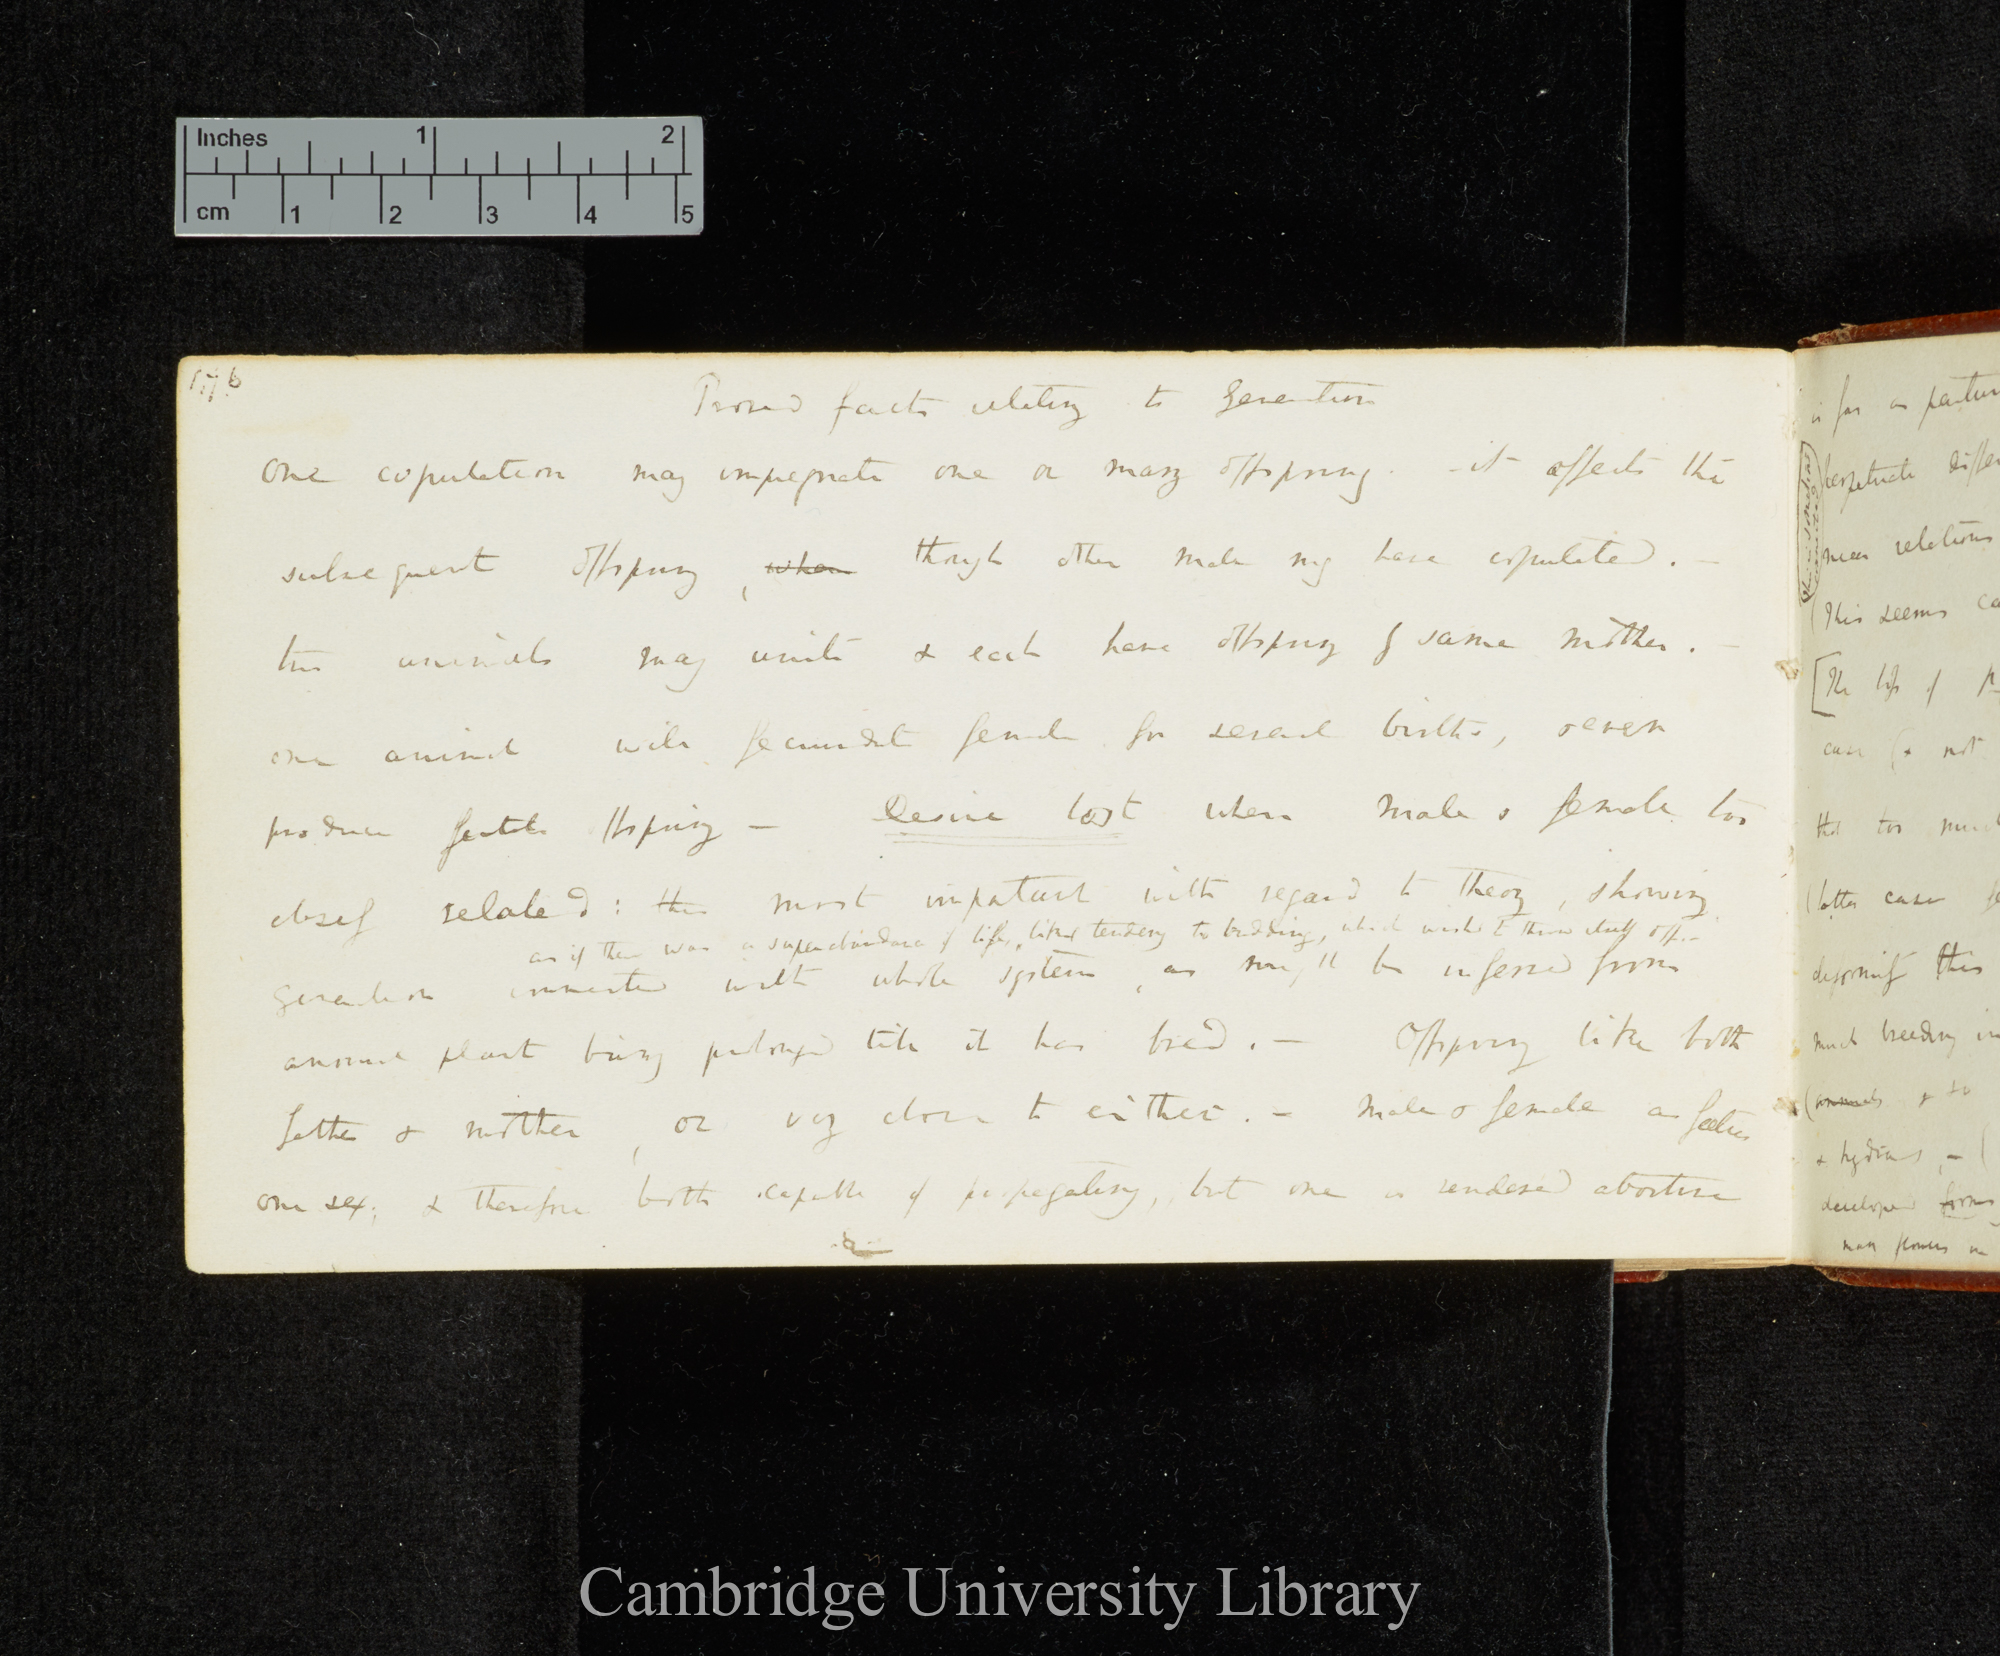 Inches 1 2
cm 1 2 3 4 5
176
Proved facts relating to Generation
One copulation may impregnate one or many offspring. - it affects the
subsequent offspring, when though other male may have copulated. -
two animals may unite & each have offspring of same mother. -
one animal will fecundate female for several births, & even
produce fertile offspring - Desire lost when male & female too
closely related: this most important with regard to theory, showing
as if there was a superabundance of life, like tendency to budding, which wishes to throw itself off. -
generation connected with whole system, as might be inferred from
annual plant being prolonged till it has bred. - Offspring like both
father & mother, or very close to either. - male & female as foetus
one sex; & therefore both capable of propagating, but one is rendered abortive
is far as
perpetuate
near relations
(This seems
[The
case (& not
that too
(latter case
deformity this
much breeding in
(animals & so
&
developed forms
many flowers
Cambridge University Library